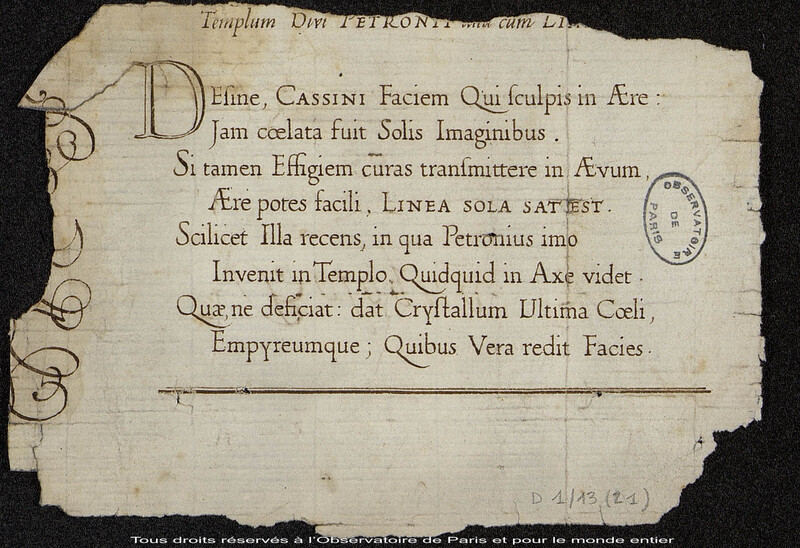 Templum Divi PETRONII cum LIN
DEſine, CASSINI Faciem Qui ſculpis in Ære :
Jam cœlata fuit Solis Imaginibus .
Si tamen Effigiem cūras tranſmittere in Ævum,
Ære potes facili, LINEA SOLA SAT EST.
Scilicet Illa recens, in qua Petronius imo
Invenit in Templo, Quidquid in Axe videt .
Quæ, ne deficiat : dat Cryſtallum Ultima Cœli,
Empyreumque ; Quibus Vera redit Facies .
OBSERVATOIRE DE PARIS
D 1/13 (21)
Tous droits réservés à l'Observatoire de Paris et pour le monde entier